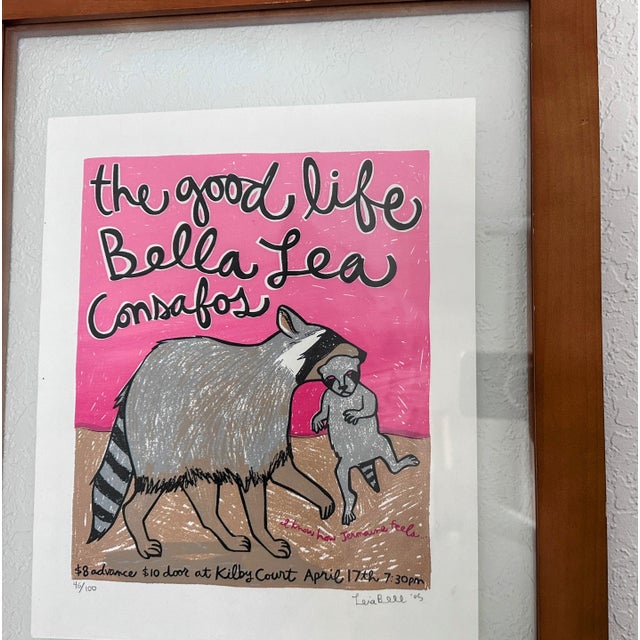 the good life
Bella Lea
Consafos
I know how Jermaine feels
$8 advance $10 door at Kilby Court April 17th 7:30pm
46/100
Leia Bell '05